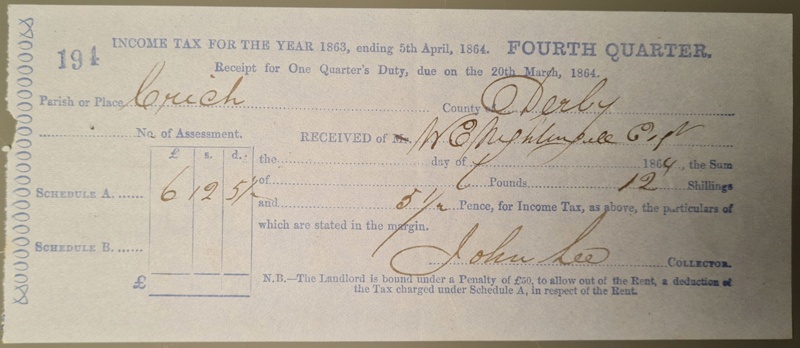 194 INCOME TAX FOR THE YEAR 1863, ending 5th April, 1864. FOURTH QUARTER.
Receipt for One Quarter's Duty, due on the 20th March, 1864.
Parish or Place Crich County of Derby
No. of Assessment. RECEIVED of Mr. W E Nightingale Esqr
£ s. d. the day of 1864, the Sum
of 6 Pounds 12 Shillings
SCHEDULE A. 6 12 5½ and 5½ Pence, for Income Tax, as above, the particulars of
which are stated in the margin.
SCHEDULE B. John Lee COLLECTOR.
£ N.B.—The Landlord is bound under a Penalty of £50, to allow out of the Rent, a deduction of
the Tax charged under Schedule A, in respect of the Rent.